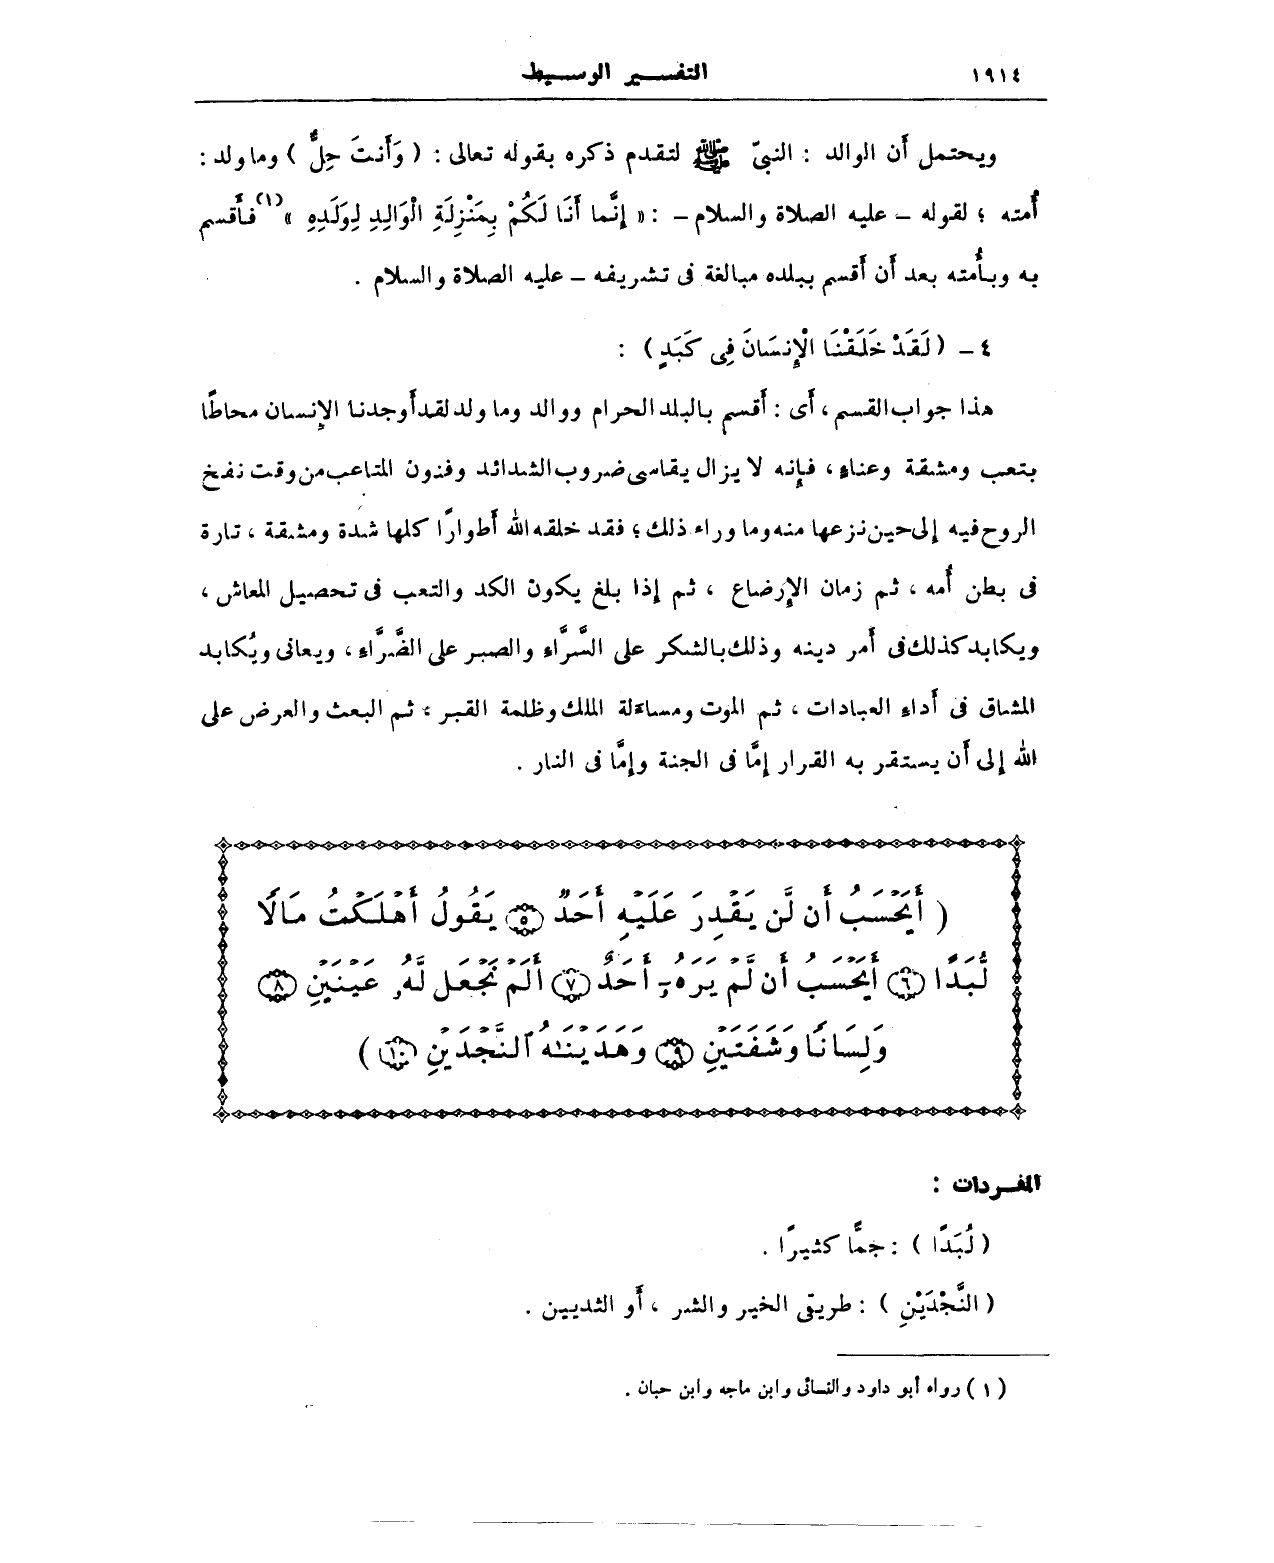 ١٩١٤
التفسير الوسيط
ويحتمل أن الوالد : النبىّ ﷺ لتقدم ذكره بقوله تعالى : ( وَأَنتَ حِلٌّ ) وما ولد :
أُمته ؛ لقوله – عليه الصلاة والسلام – : « إِنَّما أَنَا لَكُمْ بِمَنْزِلَةِ الْوَالِدِ لِوَلَدِهِ »(١) فأَقسم
به وبأُمته بعد أن أقسم ببلده مبالغة فى تشريفه – عليه الصلاة والسلام .
٤ – ( لَقَدْ خَلَقْنَا الْإِنسَانَ فِى كَبَدٍ ) :
هذا جواب القسم ، أى : أقسم بالبلد الحرام ووالد وما ولد لقد أوجدنا الإنسان محاطًا
بتعب ومشقة وعناء ، فإنه لا يزال يقاسى ضروب الشدائد وفنون المتاعب من وقت نفخ
الروح فيه إلى حين نزعها منه وما وراء ذلك ؛ فقد خلقه الله أطوارًا كلها شدة ومشقة ، تارة
فى بطن أُمه ، ثم زمان الإرضاع ، ثم إذا بلغ يكون الكد والتعب فى تحصيل المعاش ،
ويكابد كذلك فى أمر دينه وذلك بالشكر على السَّرَّاء والصبر على الضَّرَّاء ، ويعانى ويُكابد
المشاق فى أداء العبادات ، ثم الموت ومساءلة الملك وظلمة القبر ، ثم البعث والعرض على
الله إلى أن يستقر به القرار إمَّا فى الجنة وإمَّا فى النار .
( أَيَحْسَبُ أَن لَّن يَقْدِرَ عَلَيْهِ أَحَدٌ ٥ يَقُولُ أَهْلَكْتُ مَالًا
لُّبَدًا ٦ أَيَحْسَبُ أَن لَّمْ يَرَهُۥٓ أَحَدٌ ٧ أَلَمْ نَجْعَل لَّهُۥ عَيْنَيْنِ ٨
وَلِسَانًا وَشَفَتَيْنِ ٩ وَهَدَيْنَٰهُ ٱلنَّجْدَيْنِ ١٠ )
المفـردات :
( لُبَدًا ) : جمًّا كثيرًا .
( النَّجْدَيْنِ ) : طريقى الخير والشر ، أو الثديين .
( ١ ) رواه أبو داود والنسائى وابن ماجه وابن حبان .